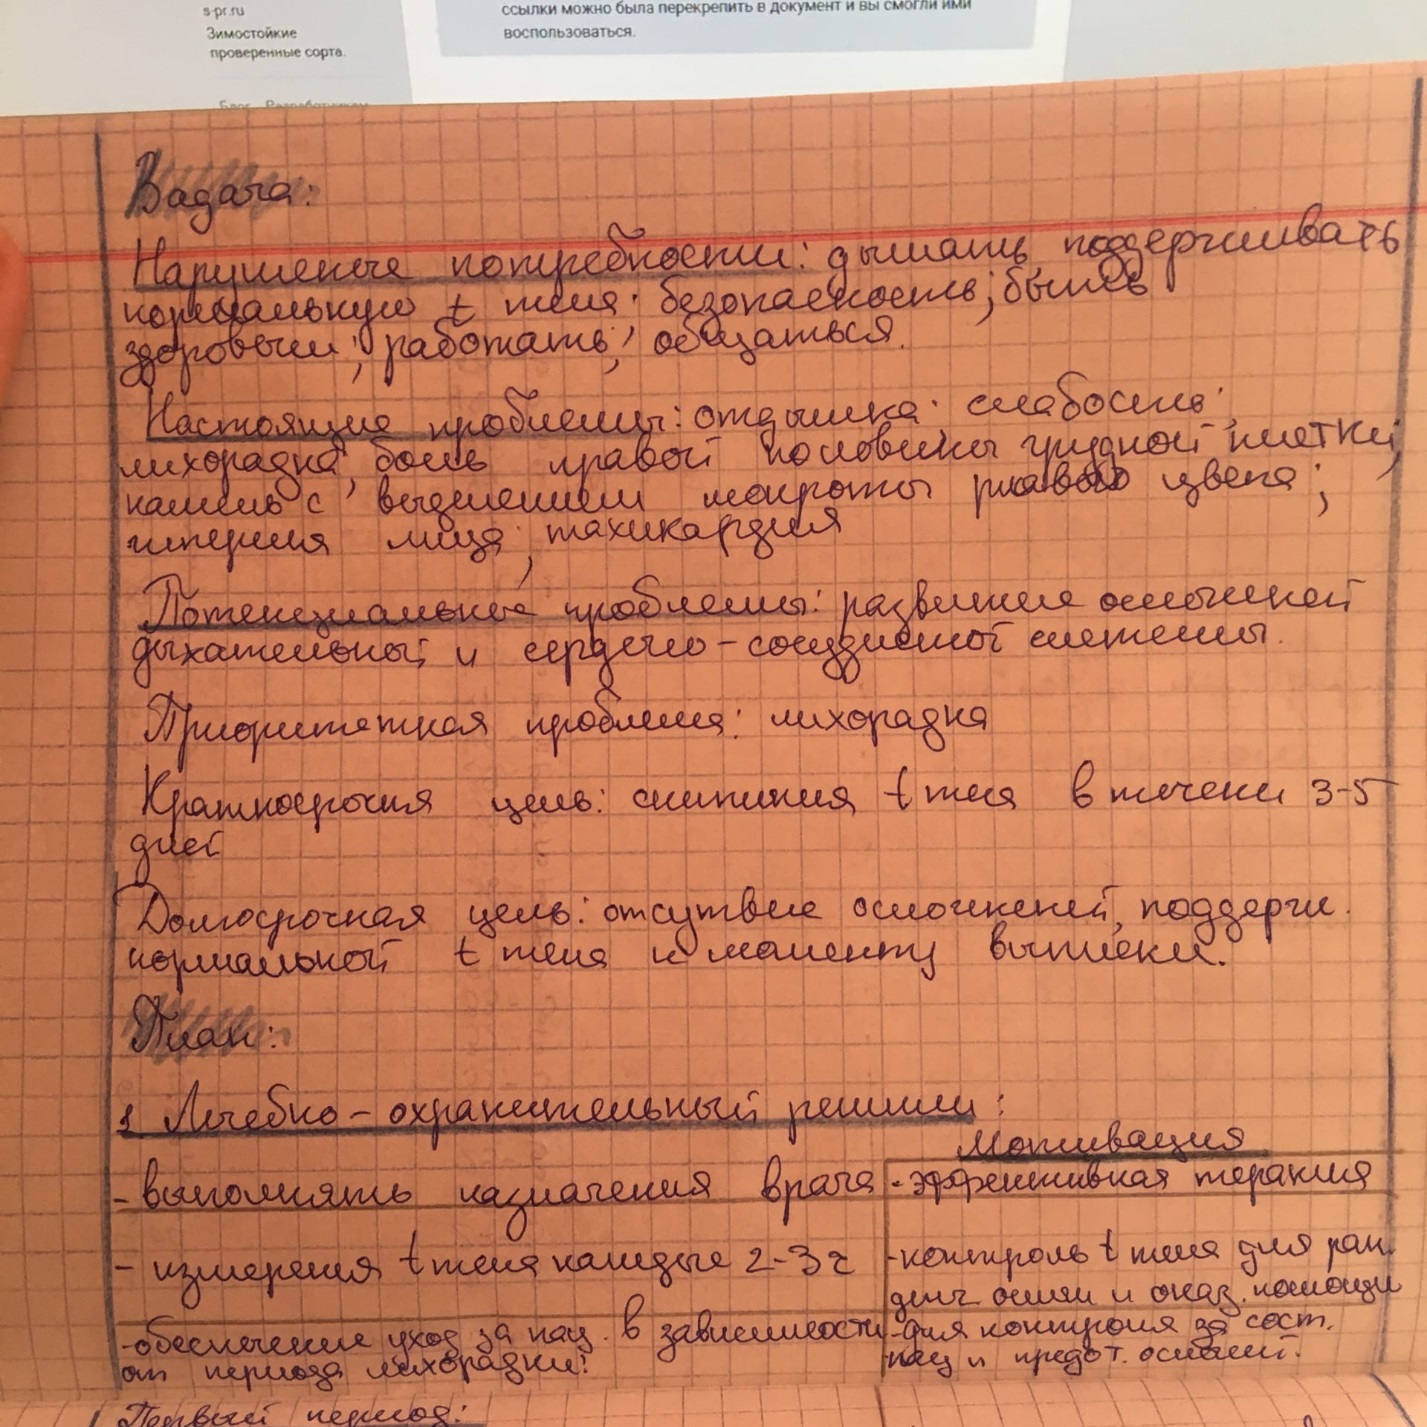 s-pr.ru
Зимостойкие
проверенные сорта.
ссылки можно была перекрепить в документ и вы смогли ими
воспользоваться.
Задача:
Нарушенные потребности: дышать, поддерживать
нормальную t тела; безопасность; быть
здоровым; работать; общаться.
Настоящие проблемы: отдышка; слабость;
лихорадка, боль правой половины грудной клетки,
кашель с выделением мокроты ржавого цвета;
гиперемия лица; тахикардия
Потенциальные проблемы: развитие осложнений
дыхательной и сердечно-сосудистой системы.
Приоритетная проблема: лихорадка
Краткосрочная цель: снижения t тела в течени 3-5
дней
Долгосрочная цель: отсутвие осложнений, поддерж.
нормальной t тела к моменту выписки.
План:
1. Лечебно-охранительный режим:
Мотивация
- выполнять назначения врача
- эффективная терапия
- измерения t тела каждые 2-3 ч
- контроль t тела для ран.
и оказ. помощи
- обеспечение уход за пац. в зависимости
от периода лихорадки:
- для контроля за сост.
пац и предот. ослож.
Первый период: